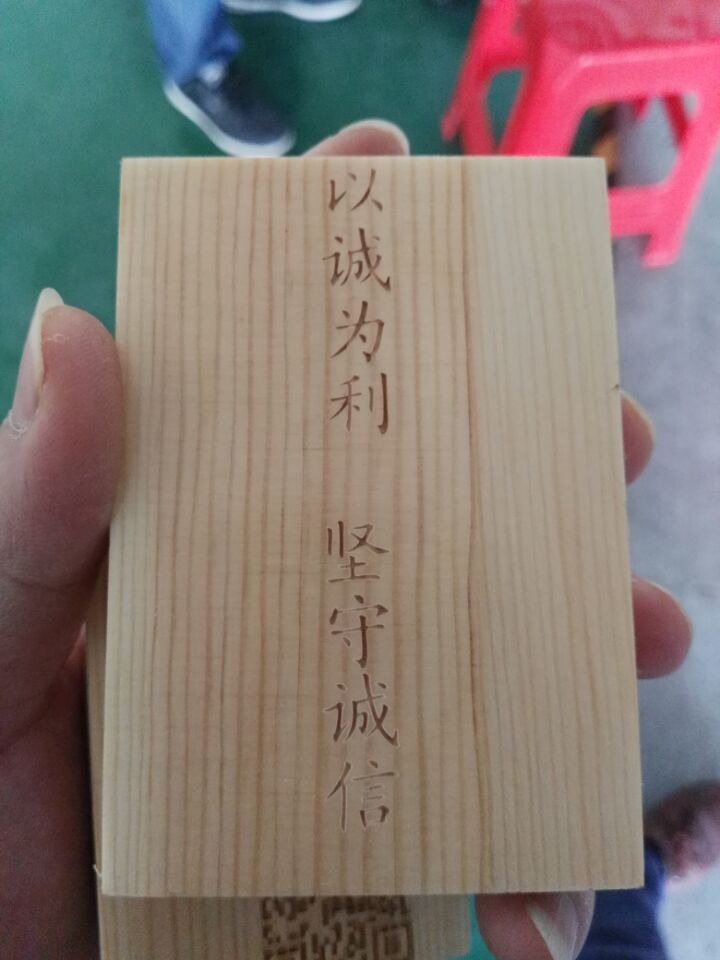 以诚为利 坚守诚信